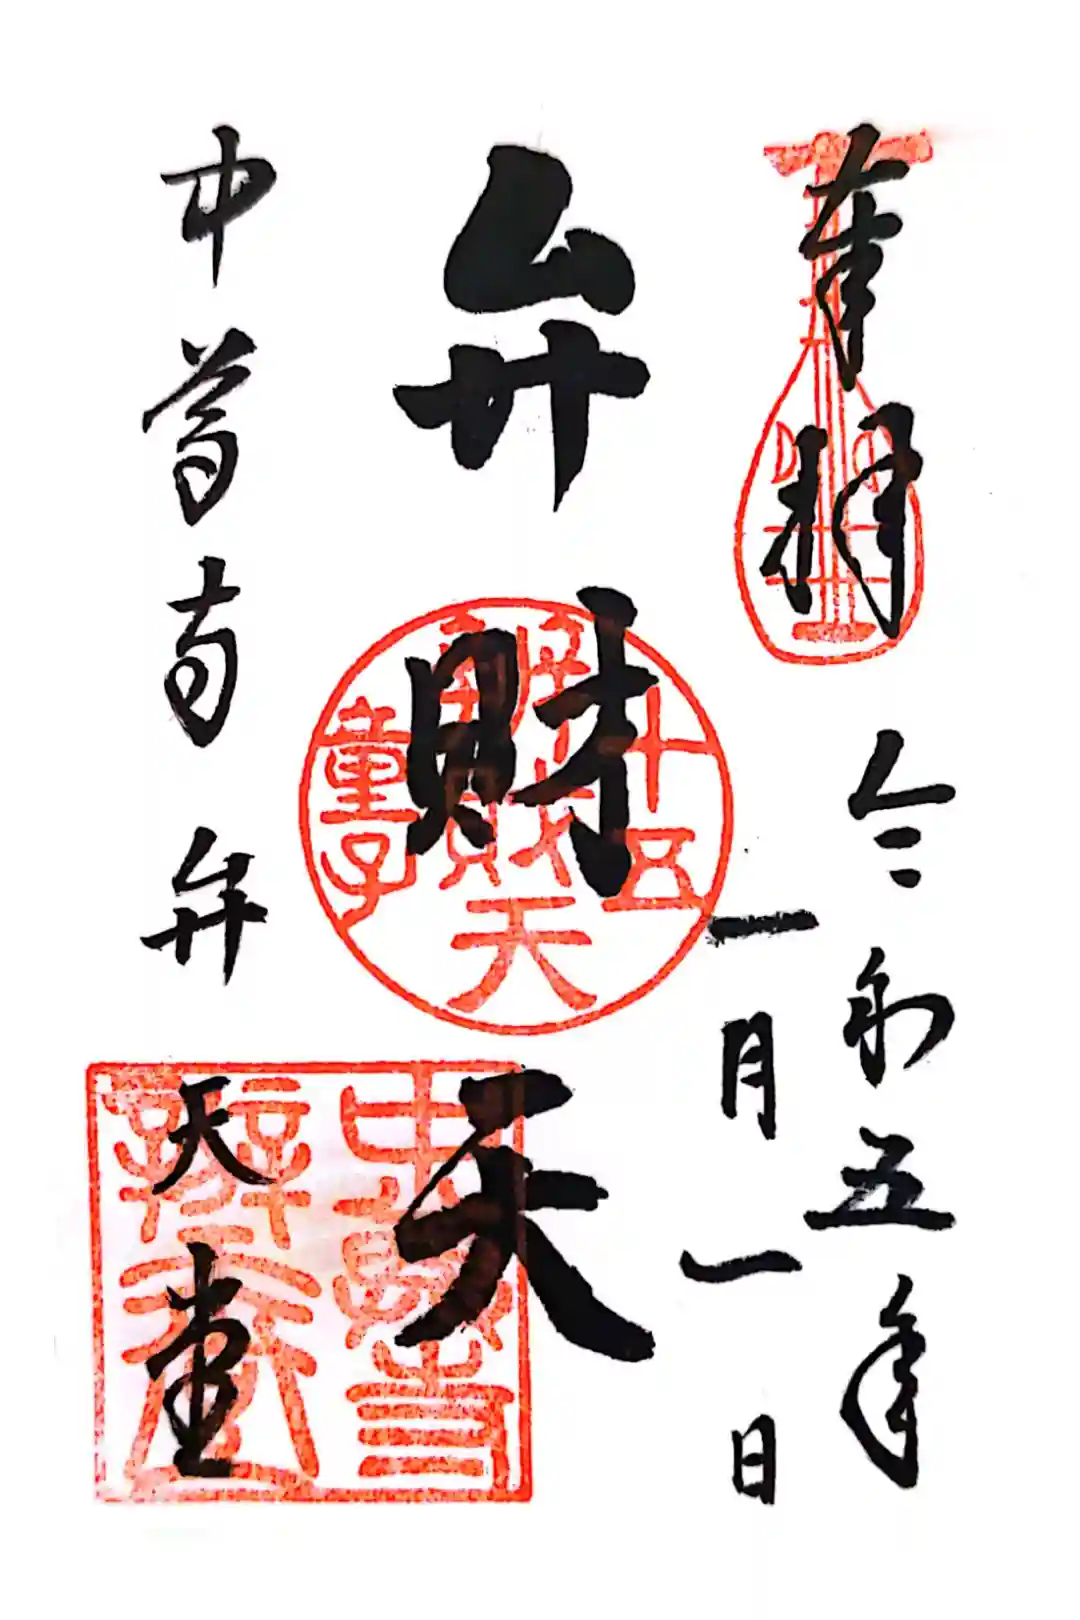 奉拝
令和五年
一月一日
弁財天
中尊寺弁天堂
十五
辨財天
童子
中尊寺
辨天堂